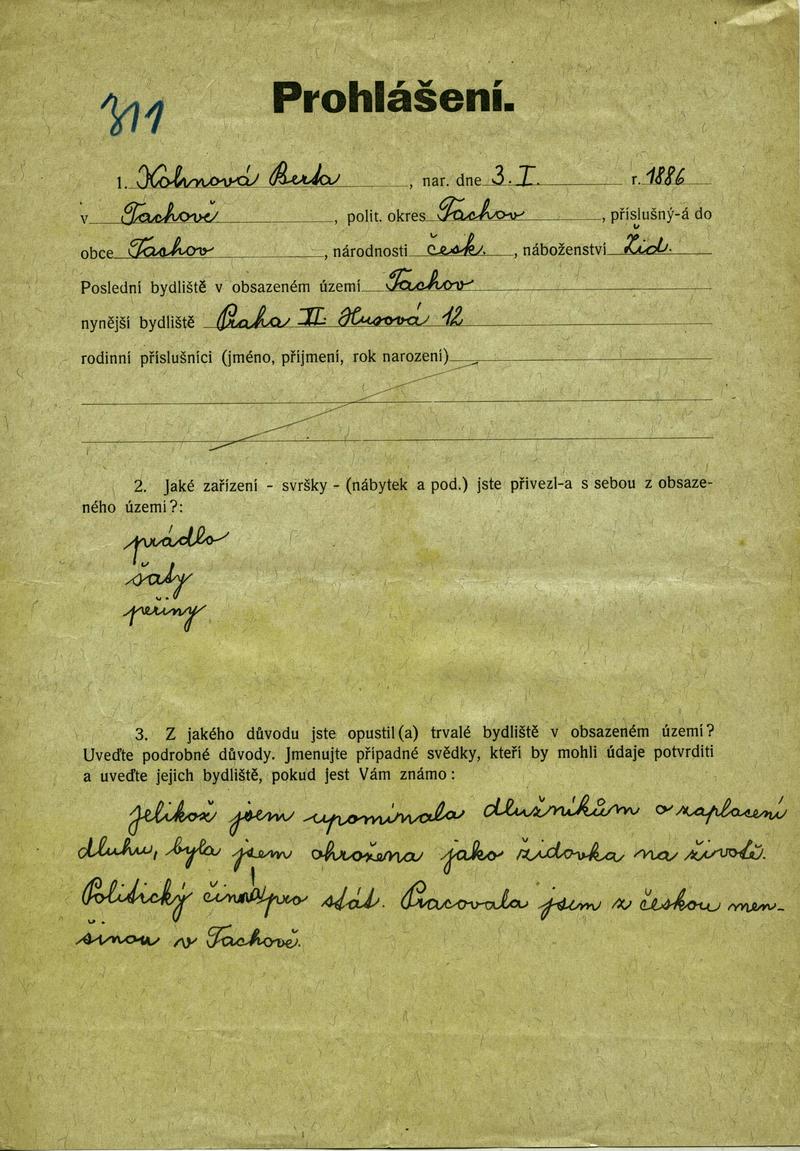 Prohlášení.
311
1. Kohnová Berta, nar. dne 3. I. r. 1886
v Tachově, polit. okres Tachov, příslušný-á do
obce Tachov, národnosti česk., náboženství Žid.
Poslední bydliště v obsazeném území Tachov
nynější bydliště Praha II. Husová 12
rodinní příslušníci (jméno, příjmení, rok narození)
2. Jaké zařízení - svršky - (nábytek a pod.) jste přivezl-a s sebou z obsaze-
ného území?:
prádlo
šaty
peřiny
3. Z jakého důvodu jste opustil(a) trvalé bydliště v obsazeném území?
Uveďte podrobné důvody. Jmenujte případné svědky, kteří by mohli údaje potvrditi
a uveďte jejich bydliště, pokud jest Vám známo:
Jelikož jsem upomínala dlužníkům o zaplacení
dluhu, byla jsem ohrožena jako židovka na životě.
Politický činná pro stát. Pracovala jsem s českou men-
šinou v Tachově.